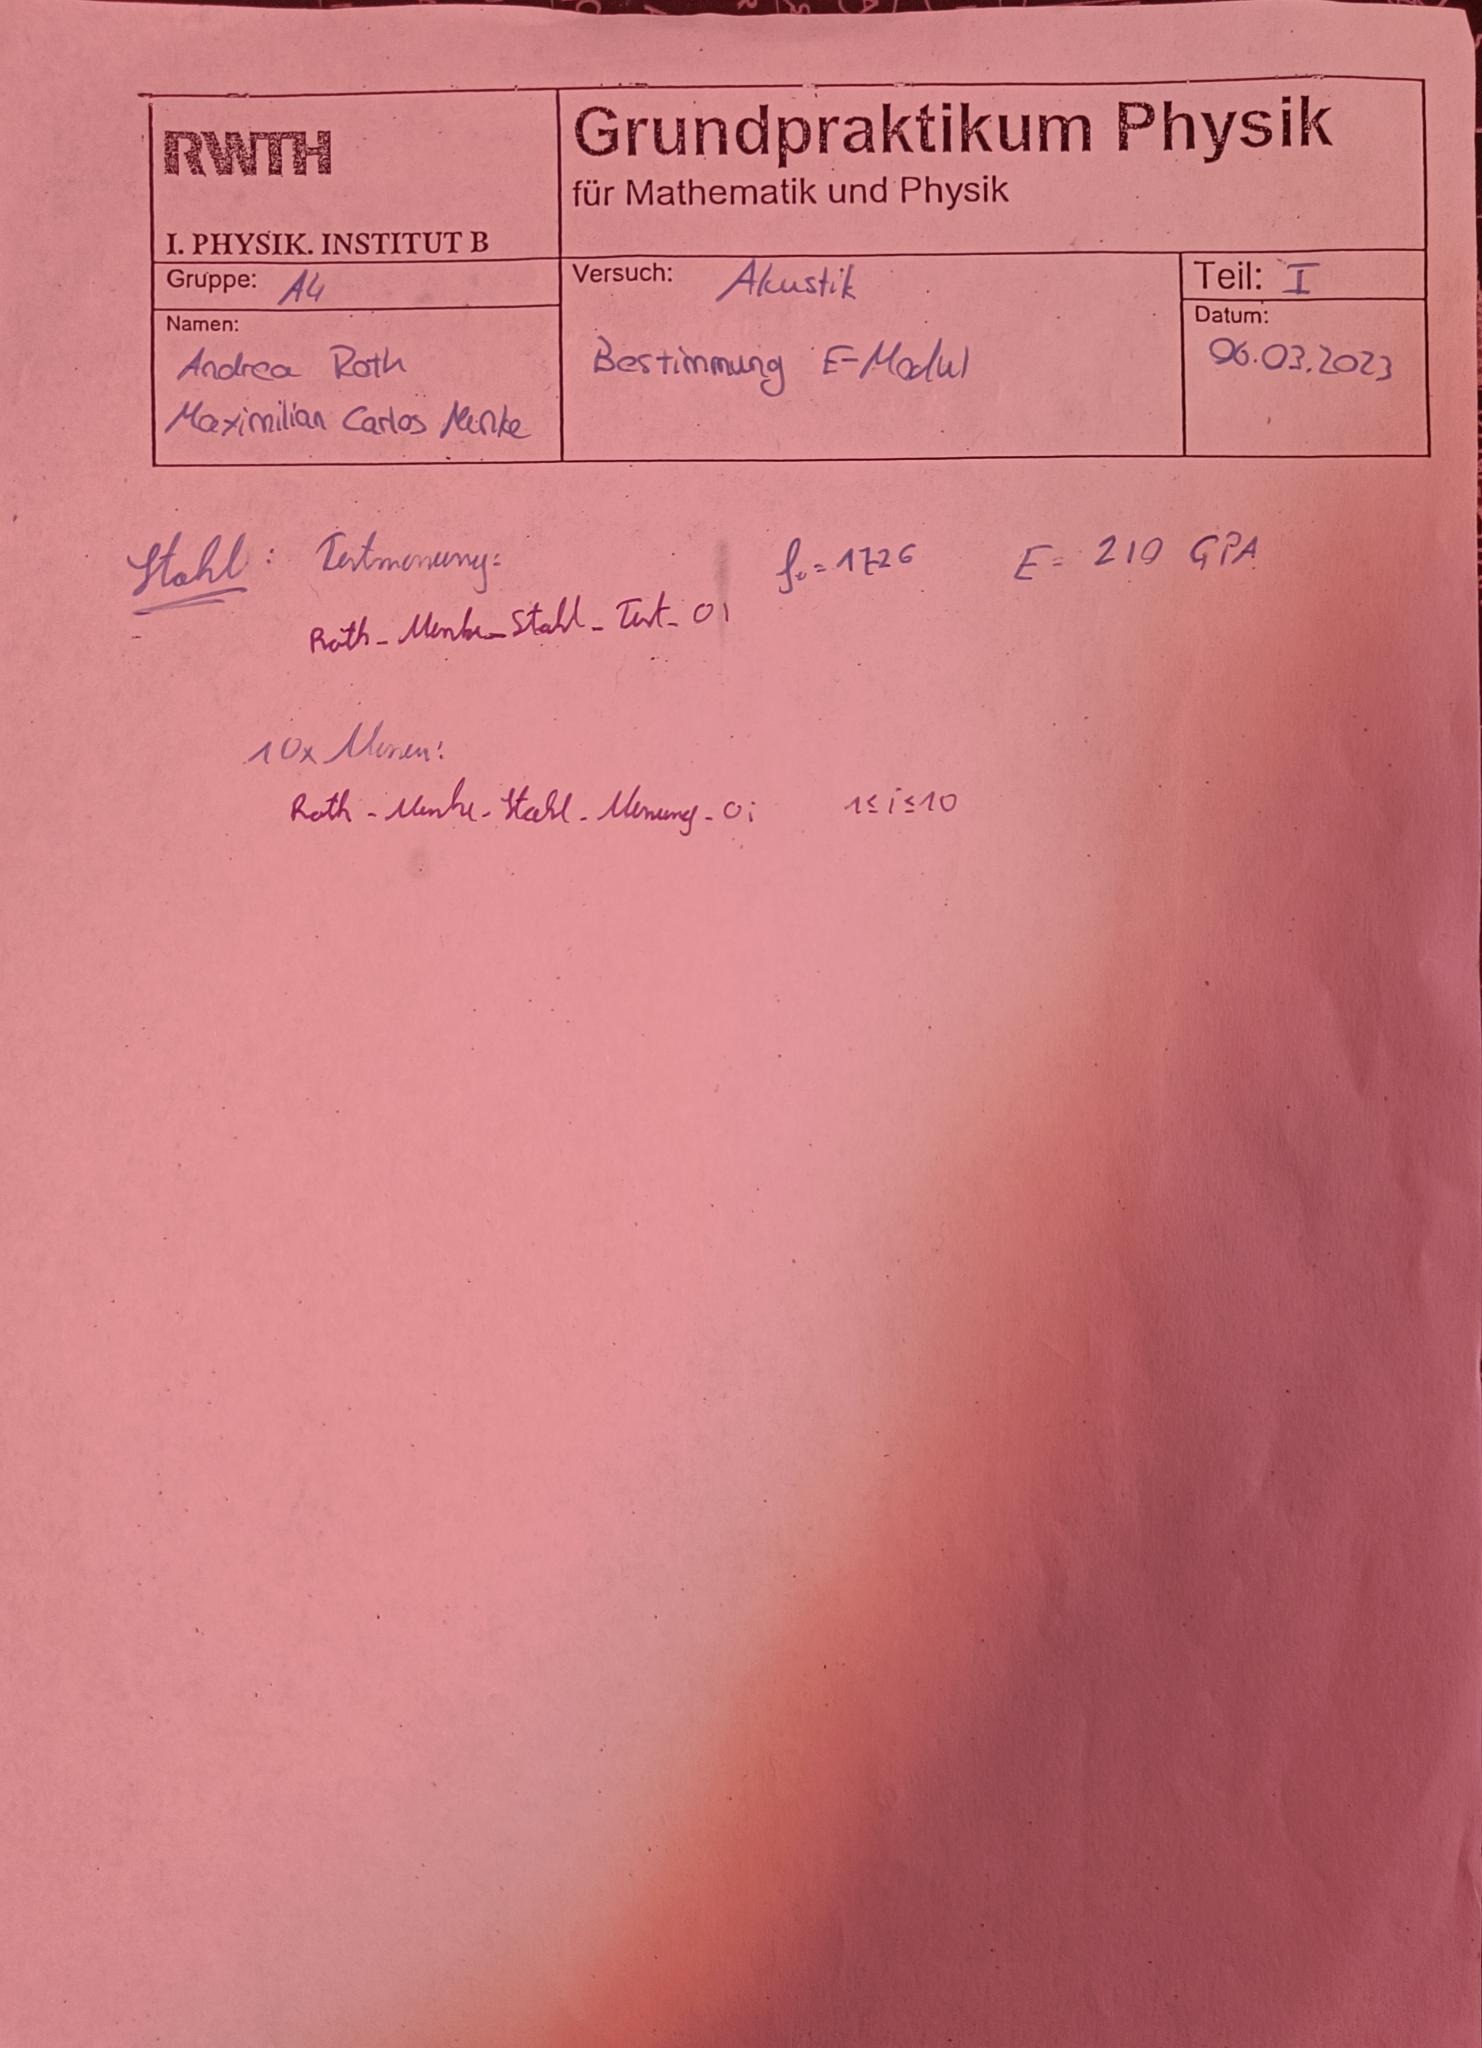 RWTH
I. PHYSIK. INSTITUT B
Grundpraktikum Physik
für Mathematik und Physik
Gruppe: A4
Versuch: Akustik
Teil: I
Namen:
Andrea Roth
Maximilian Carlos Menke
Bestimmung E-Modul
Datum:
06.03.2023
Stahl: Testmessung: f₀=1726 E= 210 GPA
Roth_Menke_Stahl_Test_01
10x Messen:
Roth_Menke_Stahl_Messung_0i 1≤i≤10